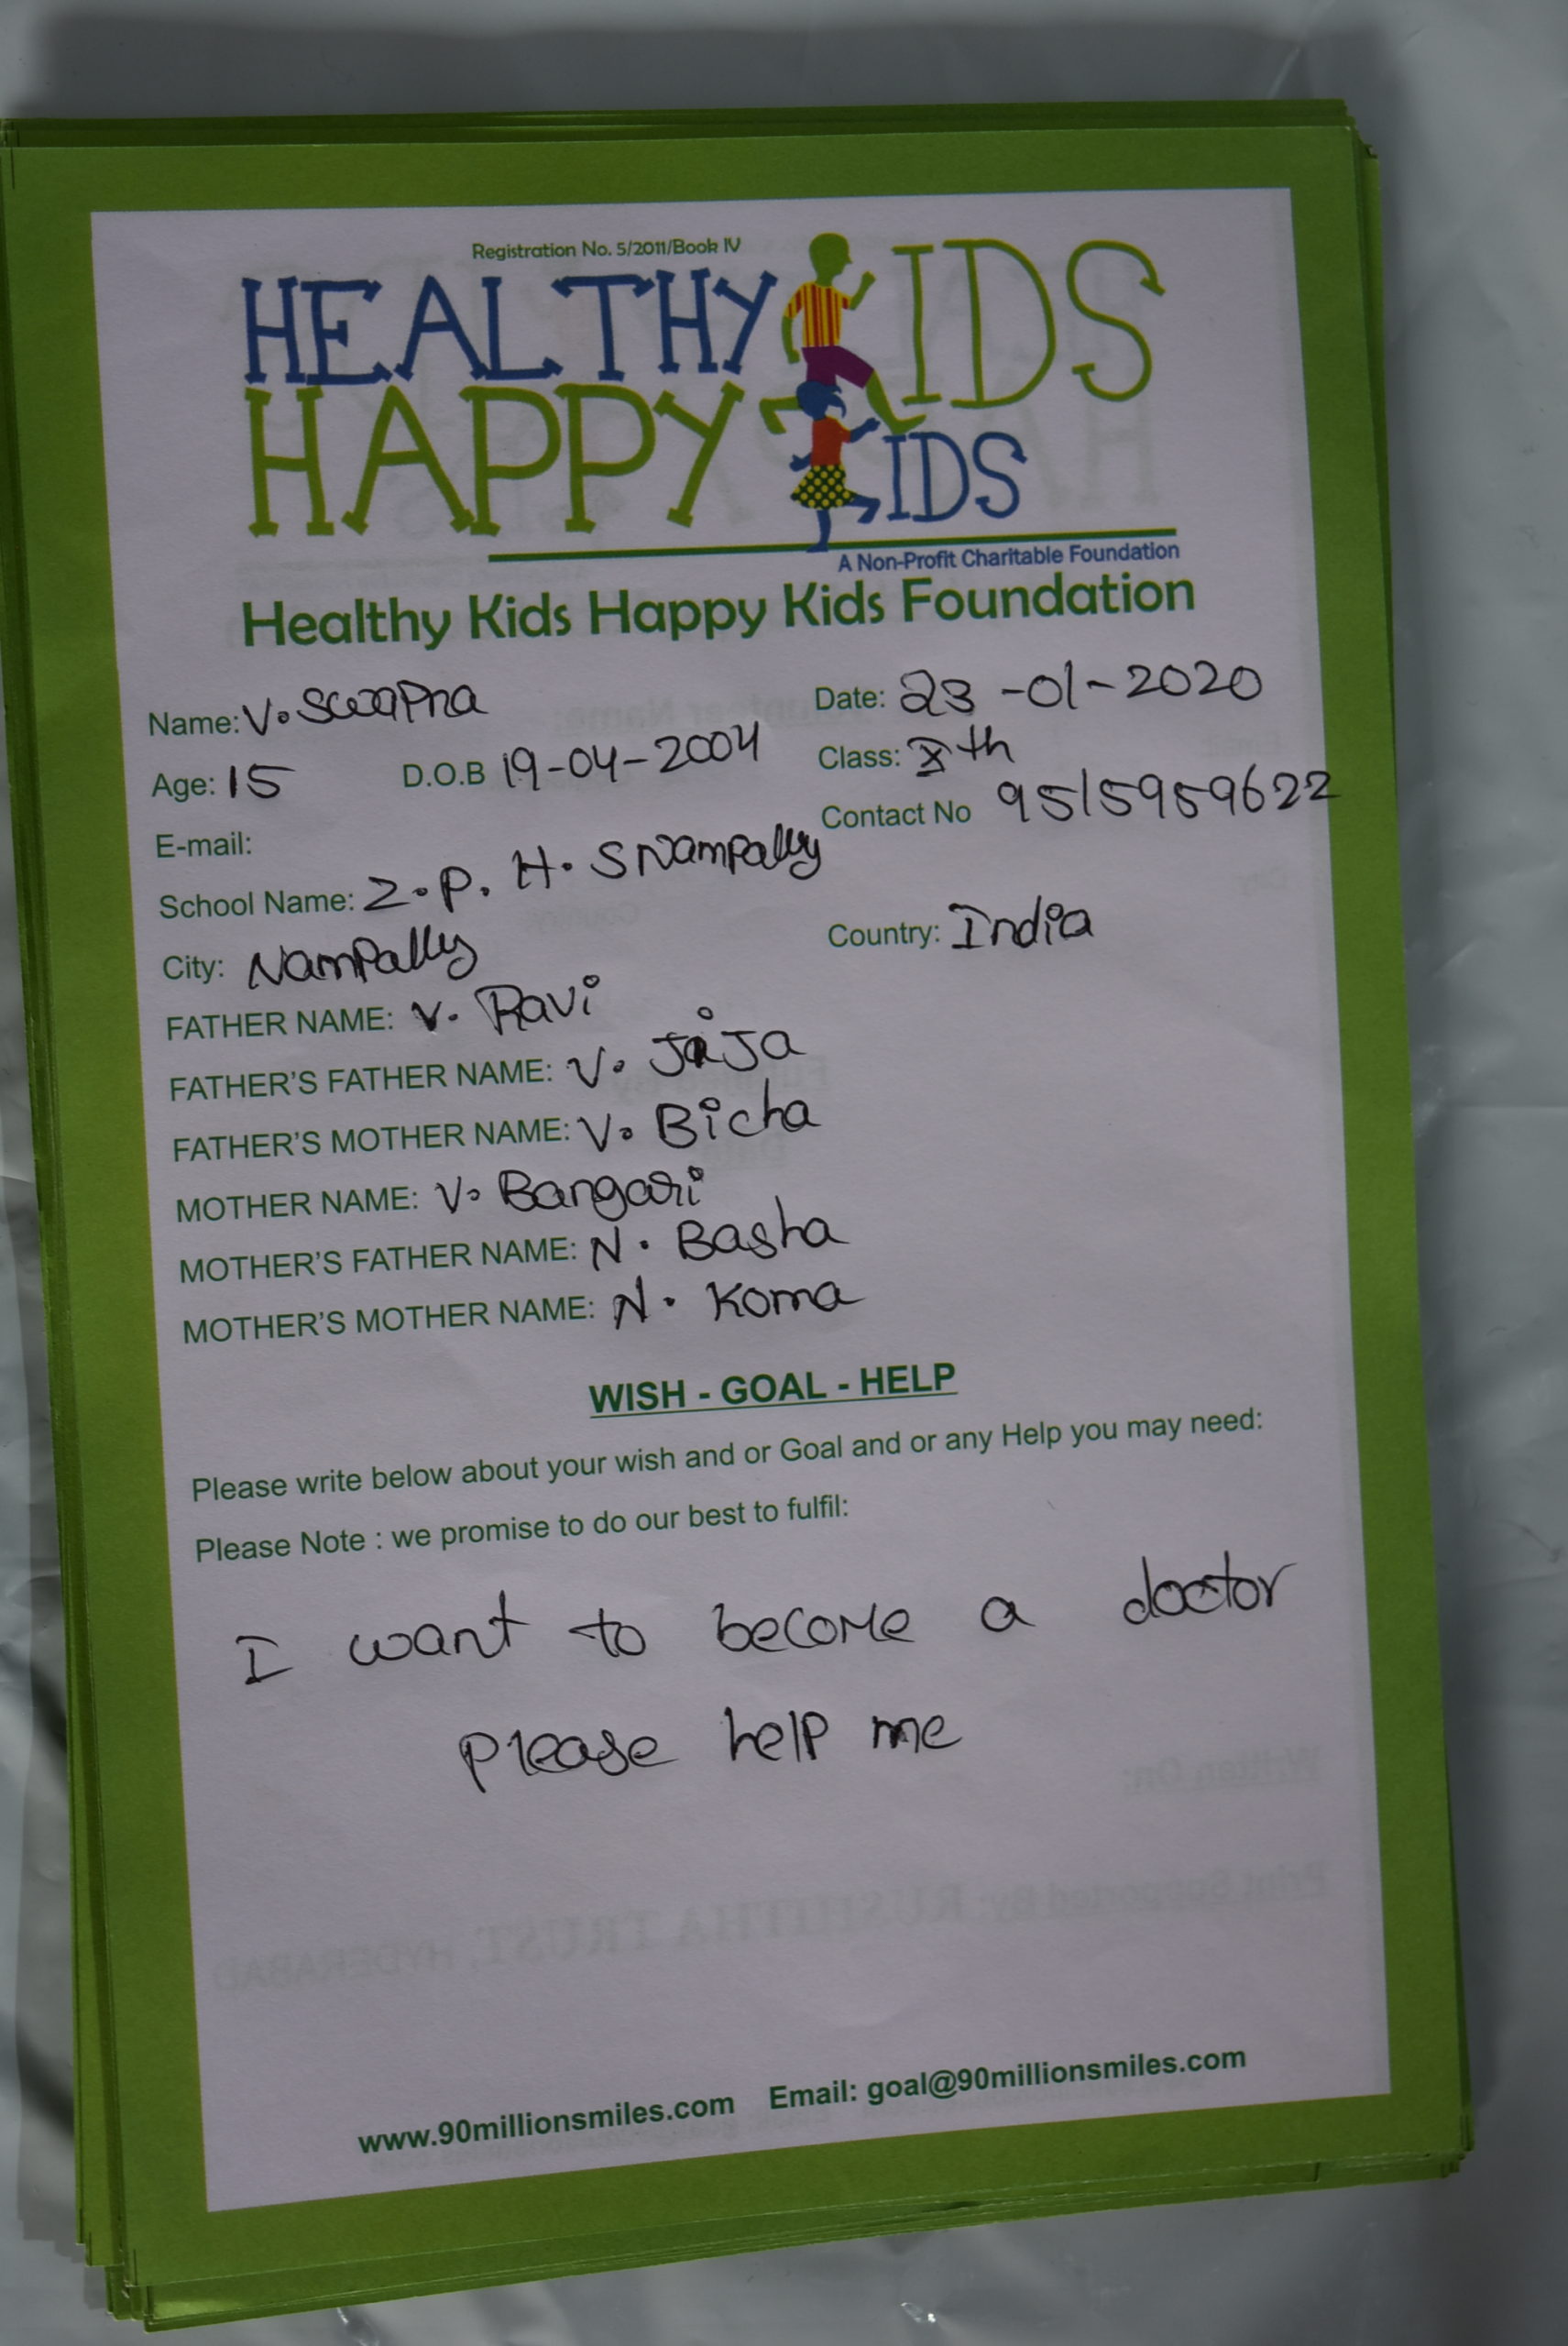 Registration No. 5/2011/Book IV
HEALTHY KIDS
HAPPY KIDS
A Non-Profit Charitable Foundation
Healthy Kids Happy Kids Foundation
Name: V. Swapna Date: 23-01-2020
Age: 15 D.O.B 19-04-2004 Class: Xth
E-mail: Contact No 9515959622
School Name: Z.P.H.S Nampally
City: Nampally Country: India
FATHER NAME: V. Ravi
FATHER'S FATHER NAME: V. JaJa
FATHER'S MOTHER NAME: V. Bicha
MOTHER NAME: V. Bangari
MOTHER'S FATHER NAME: N. Basha
MOTHER'S MOTHER NAME: N. Koma
WISH - GOAL - HELP
Please write below about your wish and or Goal and or any Help you may need:
Please Note : we promise to do our best to fulfil:
I want to become a doctor
please help me
www.90millionsmiles.com Email: goal@90millionsmiles.com